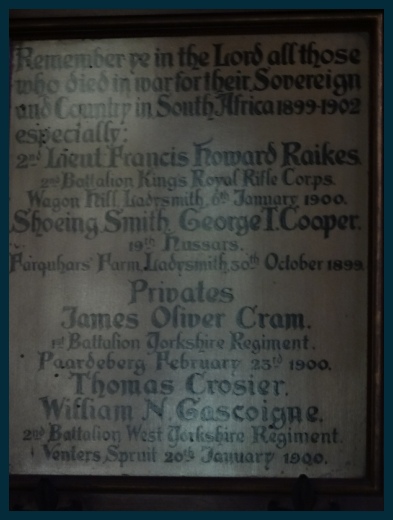 Remember ye in the Lord all those
who died in war for their Sovereign
and Country in South Africa 1899-1902
especially:
2nd Lieut Francis Howard Raikes.
2nd Battalion King's Royal Rifle Corps.
Wagon Hill, Ladysmith, 6th January 1900.
Shoeing Smith George T. Cooper.
19th Hussars.
Farquhars' Farm, Ladysmith, 30th October 1899.
Privates
James Oliver Cram.
1st Battalion Yorkshire Regiment.
Paardeberg February 23rd 1900.
Thomas Crosier.
William N. Gascoigne.
2nd Battalion West Yorkshire Regiment.
Venters Spruit 20th January 1900.